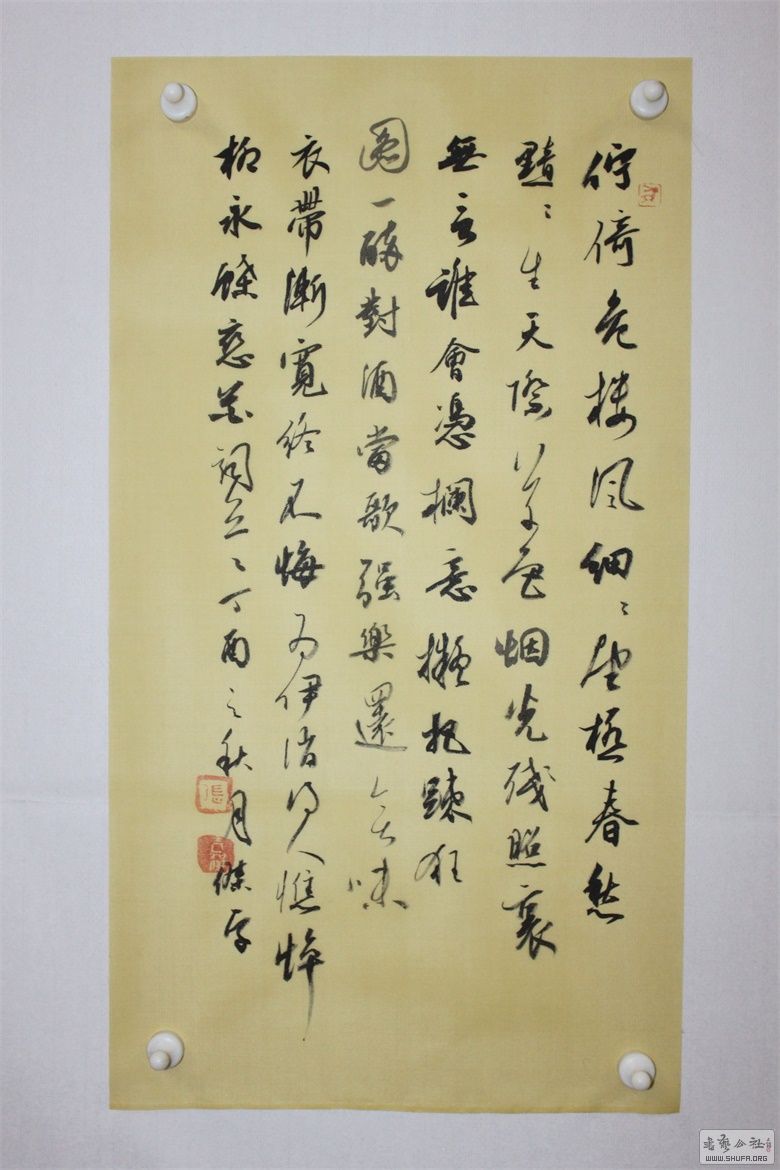 佇倚危楼風細〻望極春愁
黯〻生天際草色烟光殘照裏
無言誰會憑欄意擬把疎狂
圖一醉對酒當歌强樂還無味
衣帶漸寬終不悔為伊消得人憔悴
柳永蝶戀花詞丁酉之秋月
張
書藝公社
WWW.SHUFA.ORG